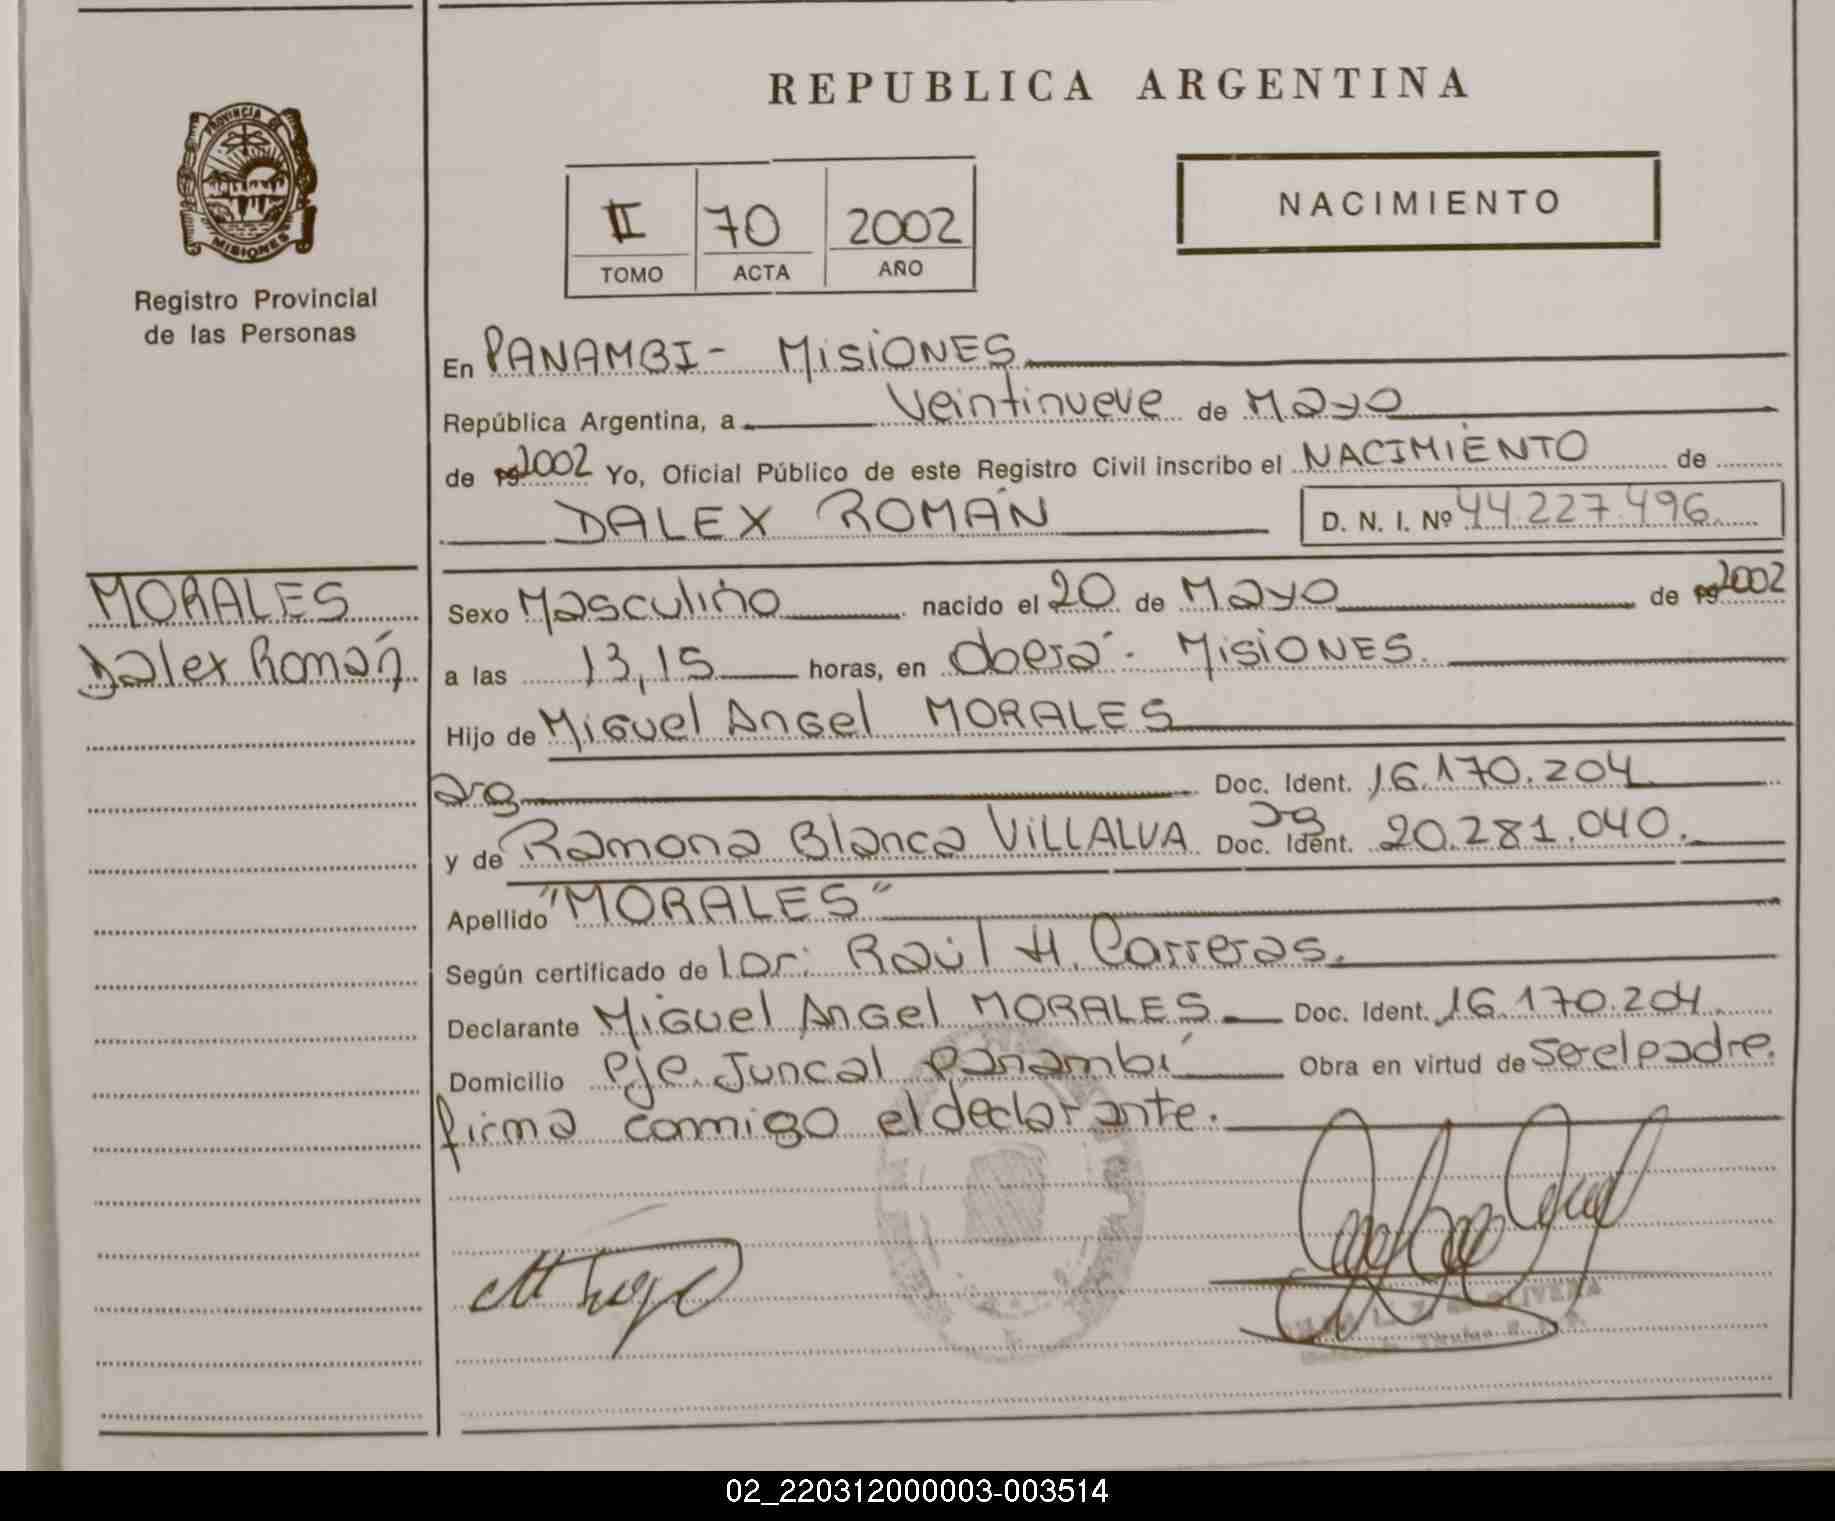 REPUBLICA ARGENTINA
PROVINCIA DE
MISIONES
Registro Provincial
de las Personas
II 70 2002
TOMO ACTA AÑO
NACIMIENTO
En PANAMBI - MisiONES
República Argentina, a Veintinueve de Mayo
de 19 2002 Yo, Oficial Público de este Registro Civil inscribo el NACIMIENTO de
DALEX ROMÁN D. N. I. Nº 44.227.496
MORALES
Dalex Román
Sexo Masculino nacido el 20 de Mayo de 19 2002
a las 13,15 horas, en Oberá - MisiONES.
Hijo de Miguel Angel MORALES
arg Doc. Ident. 16.170.204
y de Ramona Blanca ViLLALVA arg Doc. Ident. 20.281.040.
Apellido "MORALES"
Según certificado de Raúl H. Carreras.
Declarante Miguel Angel MORALES Doc. Ident. 16.170.204
Domicilio Pje. Juncal Panambí Obra en virtud de ser el padre.
firma conmigo el declarante.
OLIVERA
02_220312000003-003514